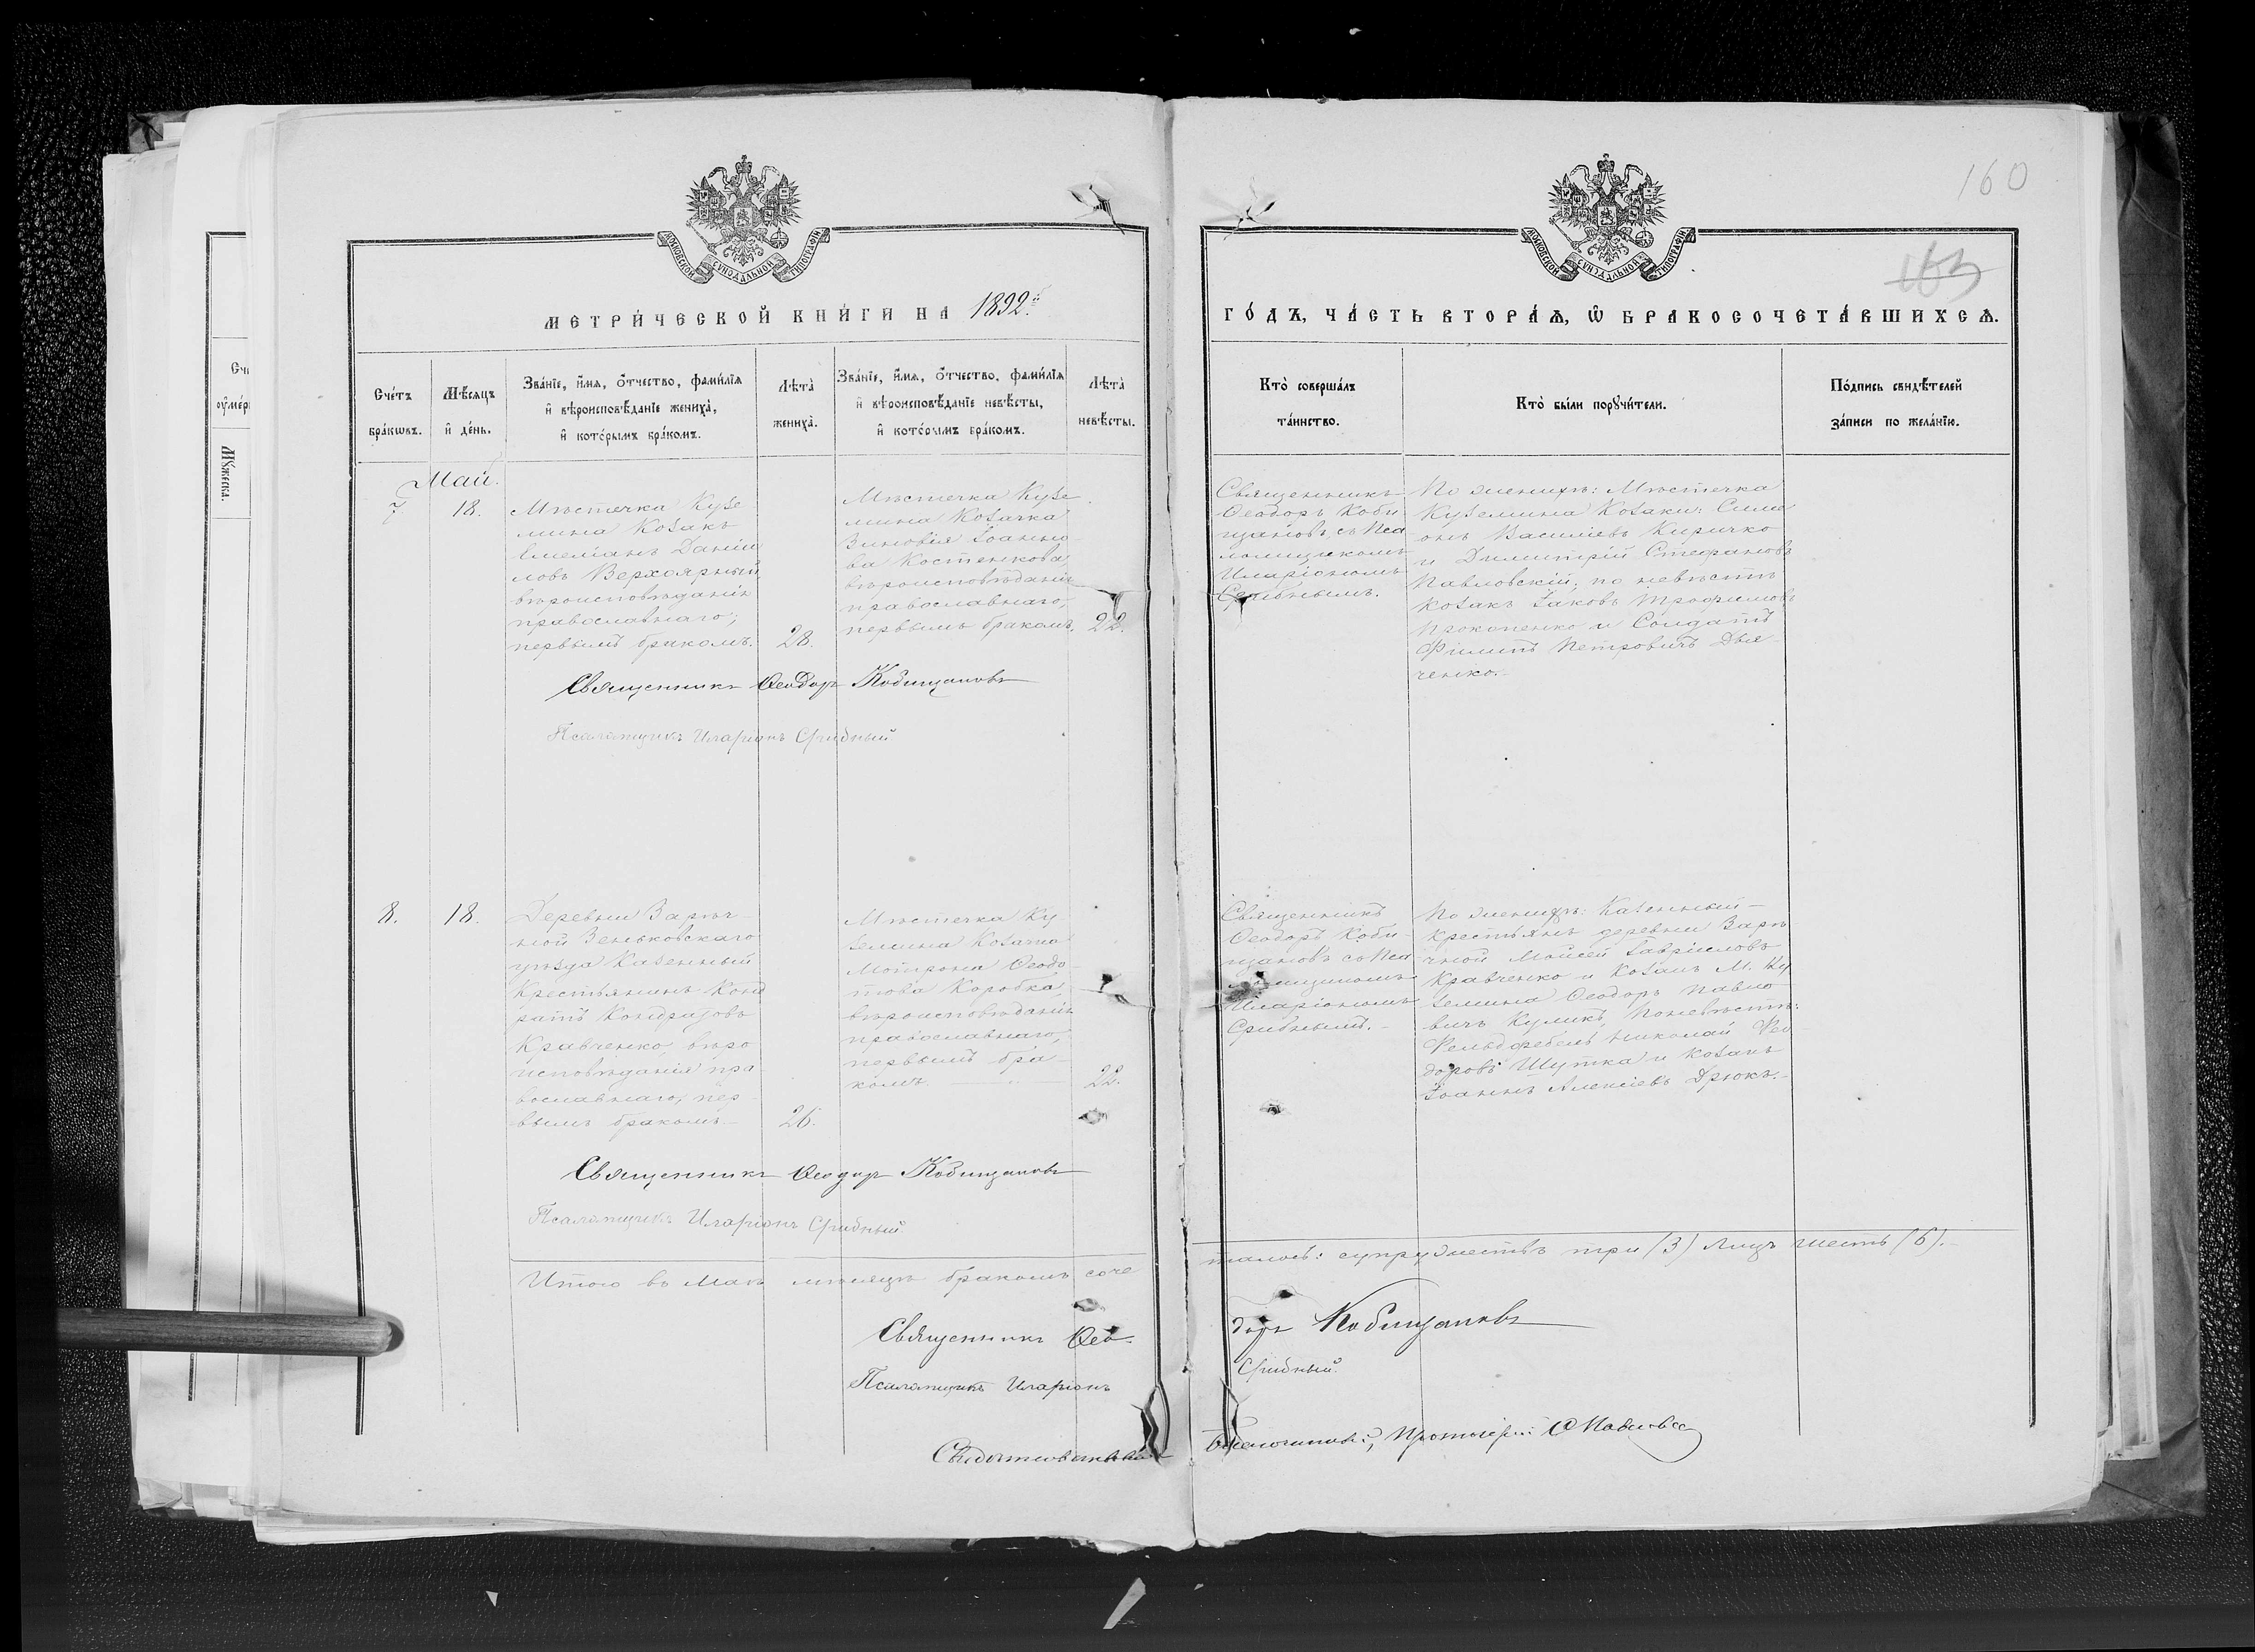 160
163
МОСКОВСКОЙ СѴНОДАЛЬНОЙ ТИПОГРАФІИ
МОСКОВСКОЙ СѴНОДАЛЬНОЙ ТИПОГРАФІИ
МЕТРИ́ЧЕСКОЙ КНИ́ГИ НА 1892й
ГО́ДЪ, ЧА́СТЬ ВТОРА́Ѧ, Ѽ БРАКОСОЧЕТА́ВШИХСѦ.
Сче́тъ
бра́кѡвъ.
Мѣ́сѧцъ
и҆ де́нь.
Зва́нїе, и҆́мѧ, ѻ҆́тчество, фами́лїѧ
и҆ вѣроисповѣ́данїе жениха̀,
и҆ кото́рымъ бра́комъ.
Лѣта̀
жениха̀.
Зва́нїе, и҆́мѧ, ѻ҆́тчество, фами́лїѧ
и҆ вѣроисповѣ́данїе невѣ́сты,
и҆ кото́рымъ бра́комъ.
Лѣта̀
невѣ́сты.
Кто̀ соверша́лъ
та́инство.
Кто̀ бы́ли порꙋчи́тели.
По́дпись свидѣ́телей
за́писи по жела́нїю.
Май.
7.
18.
Мѣстечка Кузе
мина Козакъ
Емеліанъ Даніи
ловъ Верхоярный
вѣроисповѣданія
православнаго,
первымъ бракомъ.
28.
Мѣстечка Кузе
мина Козачка
Зиновія Іоанно
ва Костенкова
вѣроисповѣданія
православнаго,
первымъ бракомъ.
22.
Священникъ
Ѳеодоръ Коби
щановъ съ Пса
ломщикомъ
Иларіономъ
Срибнымъ.
По женихѣ: Мѣстечка
Куземина Козаки: Симе
онъ Васильевъ Киричко
и Димитрій Стефановъ
Павловскій; по невѣстѣ
козакъ Іаковъ Трофимовъ
Прокопенко и Солдатъ
Филипъ Петровичъ Дья
ченко.
Священникъ Ѳеодоръ Кобищановъ
Псаломщикъ Иларіонъ Срибный
8.
18.
Деревни Зарѣч
ной Зеньковскаго
уѣзда Казенный
Крестьянинъ Конд
ратъ Кондратовъ
Кравченко, вѣро
исповѣданія пра
вославнаго, пер
вымъ бракомъ.
26.
Мѣстечка Ку
земина Козачка
Мотрона Ѳеодо
това Коробка,
вѣроисповѣданія
православнаго,
первымъ бра
комъ
22.
Священникъ
Ѳеодоръ Коби
щановъ съ Пса
ломщикомъ
Иларіономъ
Срибнымъ.
По женихѣ: Казенный
крестьянъ деревни Зарѣ
чной Моисей Гавріиловъ
Кравченко и Козакъ М. Ку
земина Ѳеодоръ Павло
вичъ Куликъ, По невѣстѣ:
Фельдфебель Николай Фео
доровъ Шутка и козакъ
Іоаннъ Алексіевъ Дрюкъ.
Священникъ Ѳеодоръ Кобищановъ
Псаломщикъ Иларіонъ Срибный
Итого въ Маѣ мѣсяцѣ бракомъ соче
талось: супружествъ три (3) лицъ шесть (6).
Священникъ Ѳео
доръ Кобищановъ
Псаломщикъ Иларіонъ
Срибный.
Благочинный, Протоіерей
Сче
оу҆ме́р
Мꙋ́жеска.